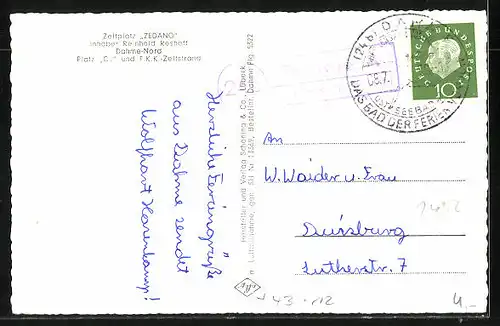 Zeltplatz „ZEGANO"
Inhaber Reinhold Reshöft
Dahme-Nord
Platz „C" und F.K.K.-Zeltstrand
Herzliche Feriengrüße
aus Dahme sendet
Wolfhart Harenkamp!
Hersteller und Verlag Schöning & Co., Lübeck
Luftaufnahme, Bestellnr. Dahme Flg. 5522
(24b) DAHME
08.7.
OSTSEEBAD
DAS BAD DER FERIEN
DEUTSCHE BUNDESPOST
10
An
W. Waider u. Frau
Duisburg
Lutherstr. 7